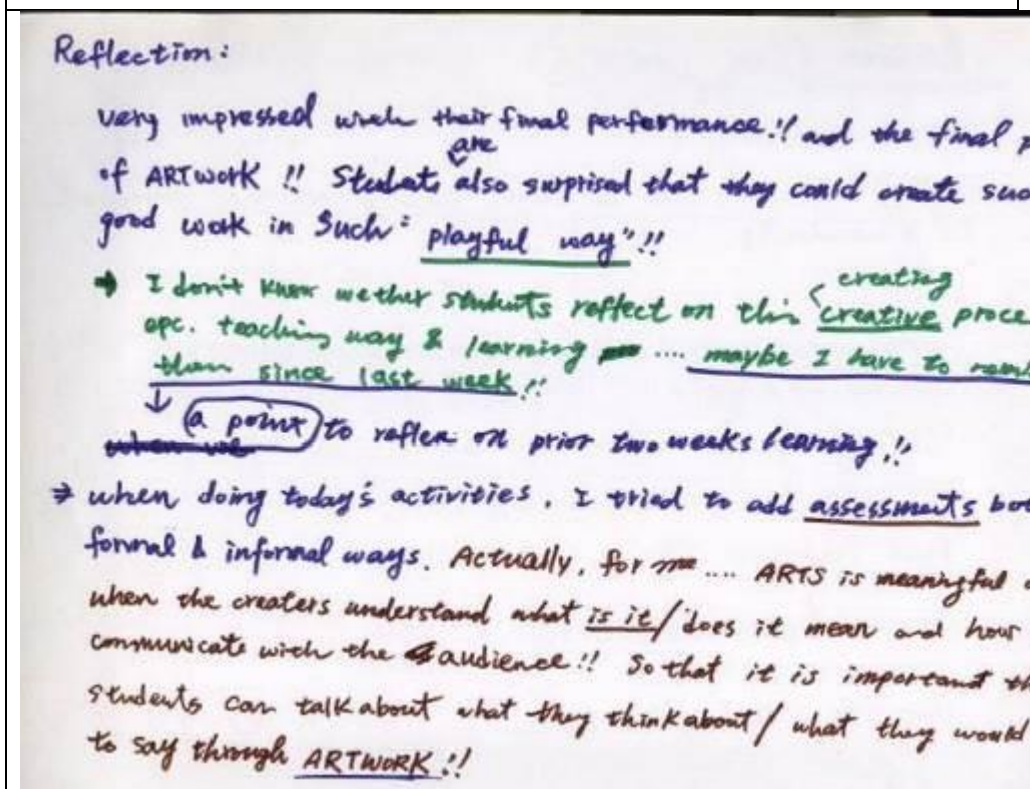 Reflection:
very impressed with their final performance!! and the final p
are
of ARTWORK !! Students also surprised that they could create suc
good work in Such "playful way"!!
creating
→ I don't know wether students reflect on this creative proce
teaching way & learning .... maybe I have to
them since last week!!
↓ a point to reflec on prior two weeks learning!!
when we
⇒ when doing today's activities, I tried to add assessments bot
formal & informal ways. Actually, for me .... ARTS is meaningful
when the creaters understand what is it/does it mean and how
communicate with the audience!! So that it is important th
students can talk about what they think about/ what they would
to say through ARTWORK!!